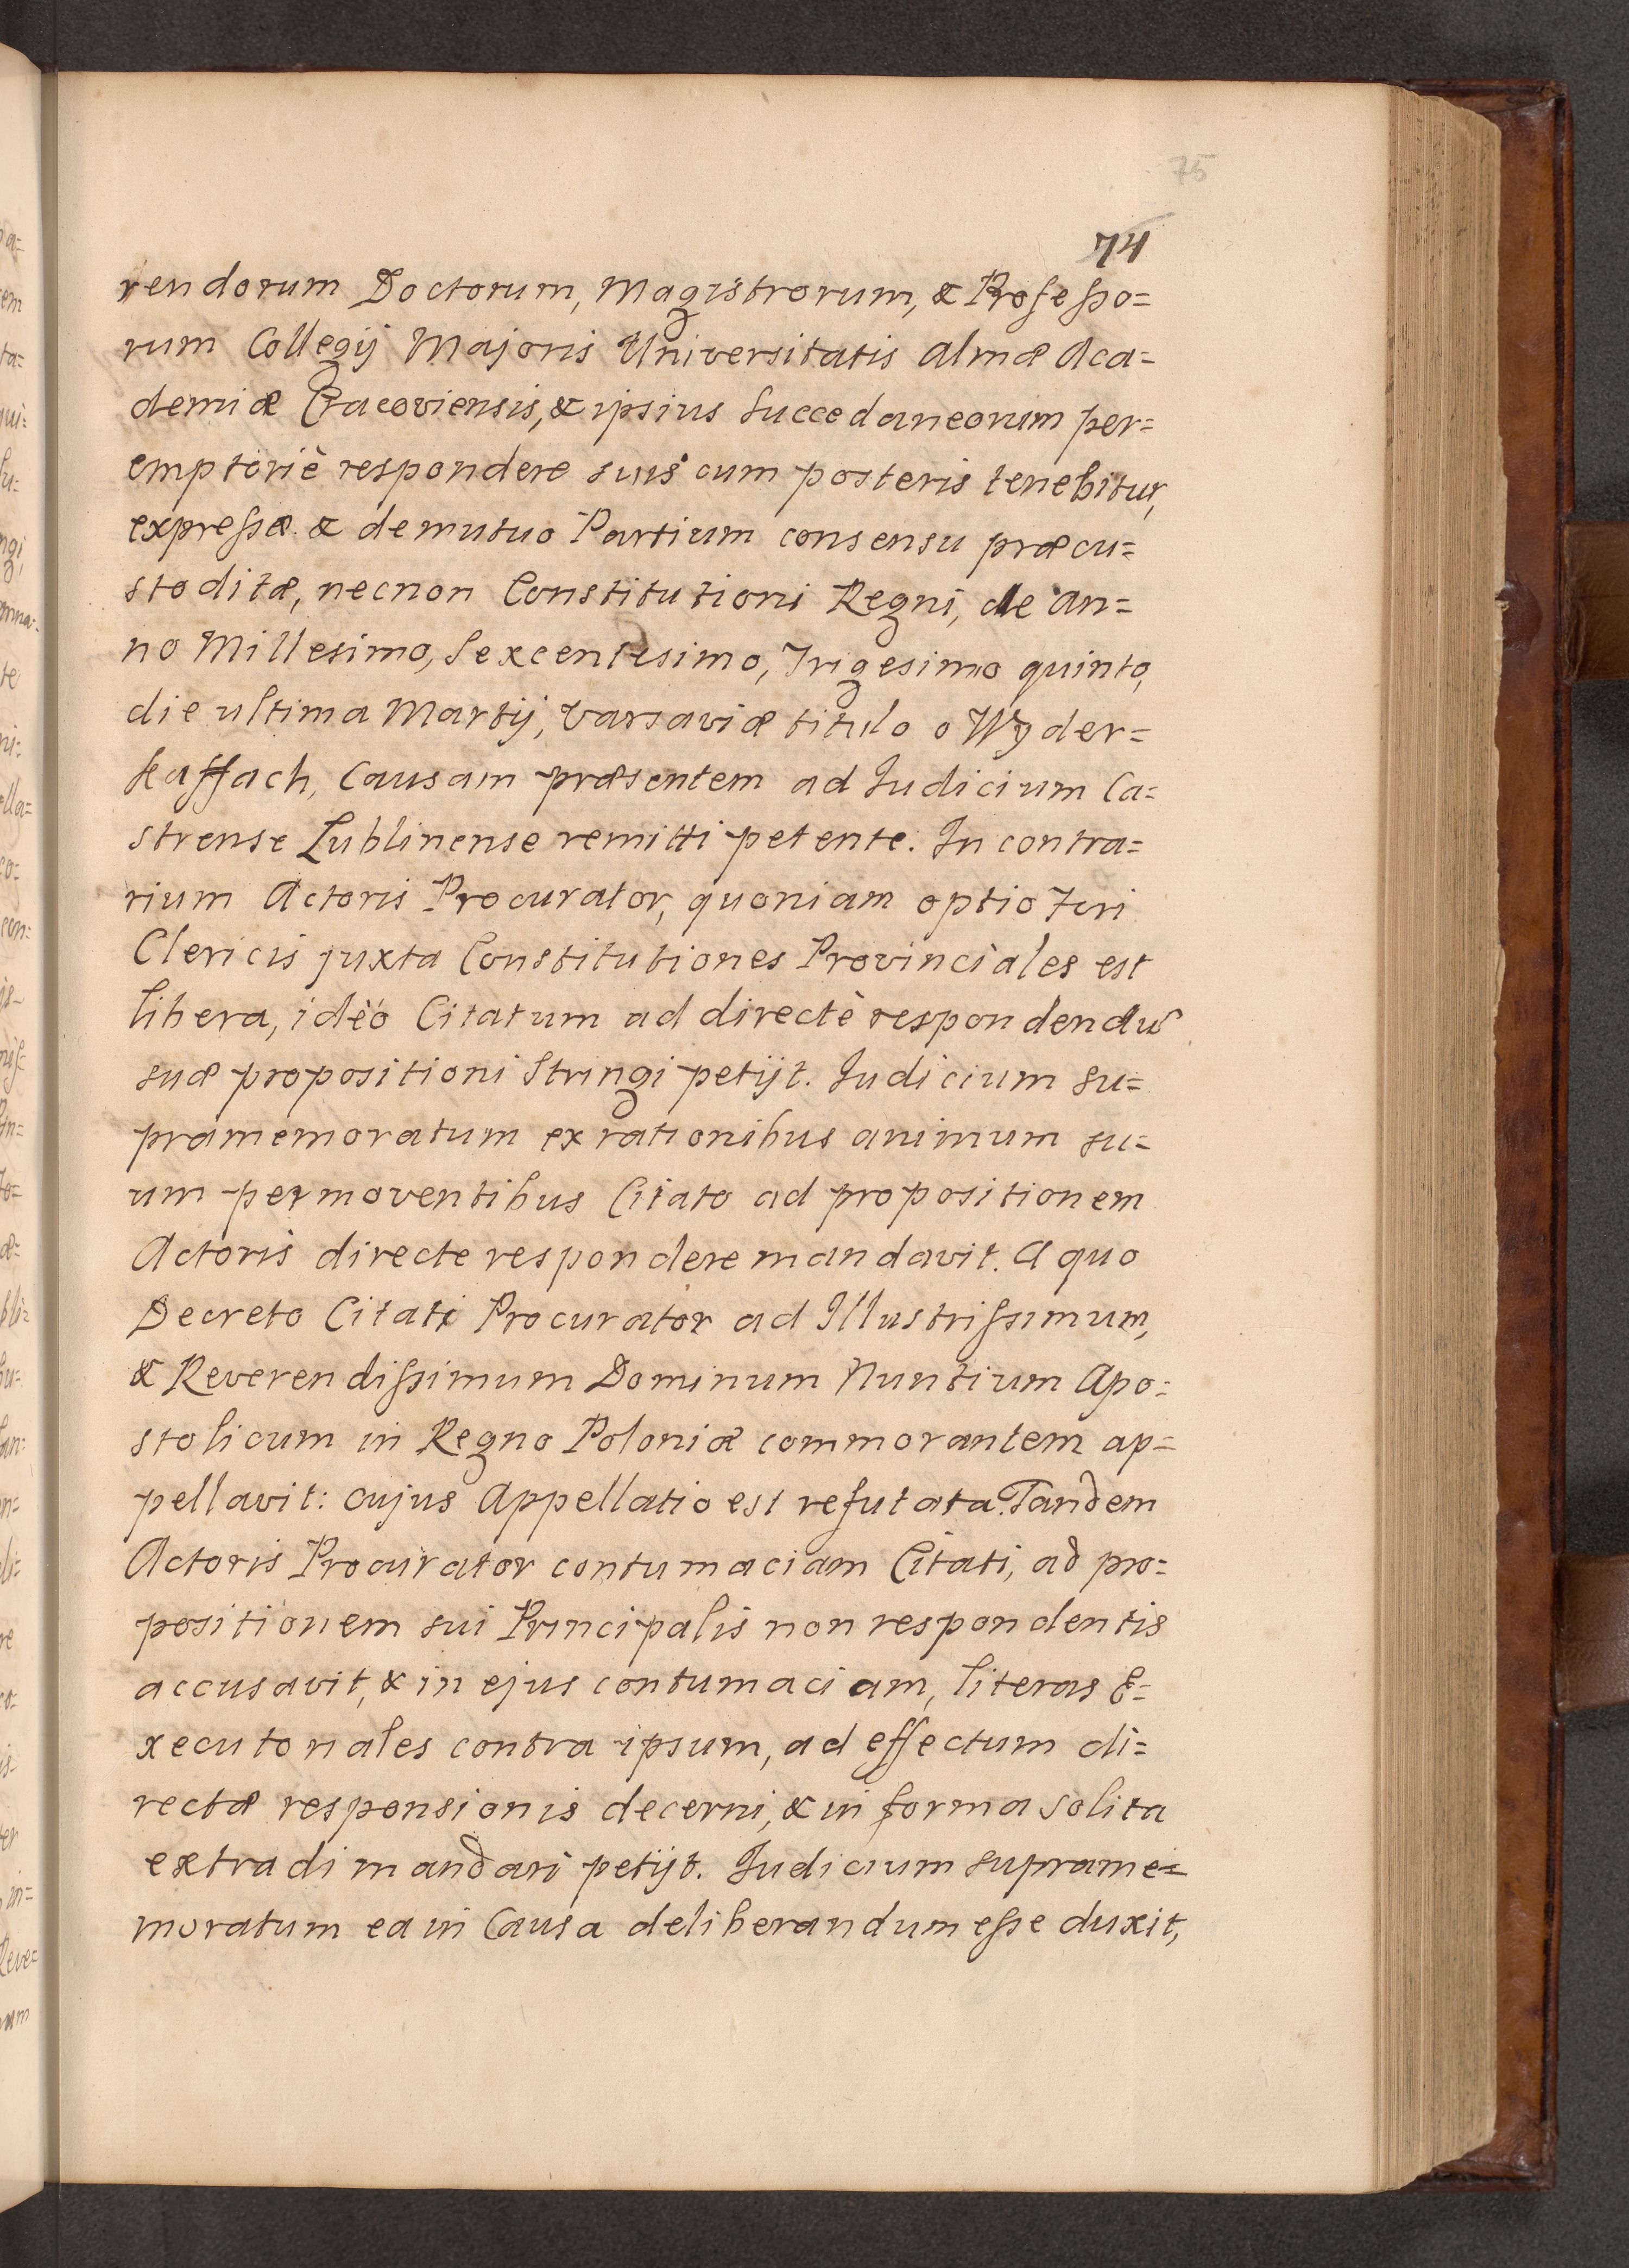 75
74
rendorum Doctorum, Magistrorum, & Professo=
rum Collegij Majoris Universitatis Almæ Aca=
demiæ Cracoviensis, & ipsius Succedaneorum per=
emptoriè respondere suis cum posteris tenebitur,
expressæ & de mutuo Partium consensu præcu=
stoditæ, necnon Constitutioni Regni, de An=
no Millesimo, Sexcentesimo, Trigesimo quinto,
die ultima Martij, Varsaviæ titulo o Wyder=
kaffach, Causam præsentem ad Iudicium Ca=
strense Lublinense remitti petente. In contra=
rium Actoris Procurator, quoniam optio Fori
Clericis juxta Constitutiones Provinciales est
libera, idèo Citatum ad directè respondendũ
suæ propositioni Stringi petijt. Iudicium su=
pramemoratum ex rationibus animum su=
um permoventibus Citato ad propositionem
Actoris directe respondere mandavit. A quo
Decreto Citati Procurator ad Illustrissimum,
& Reverendissimum Dominum Nuntium Apo=
stolicum in Regno Poloniæ commorantem ap=
pellavit: cujus Appellatio est refutata. Tandem
Actoris Procurator contumaciam Citati, ad pro=
positionem sui Principalis non respondentis
accusavit, & in ejus contumaciam, literas E=
xecutoriales contra ipsum, ad effectum di=
rectæ responsionis decerni, & in forma solita
extradi mandari petijt. Iudicium suprame=
moratum ea in Causa deliberandum esse duxit,